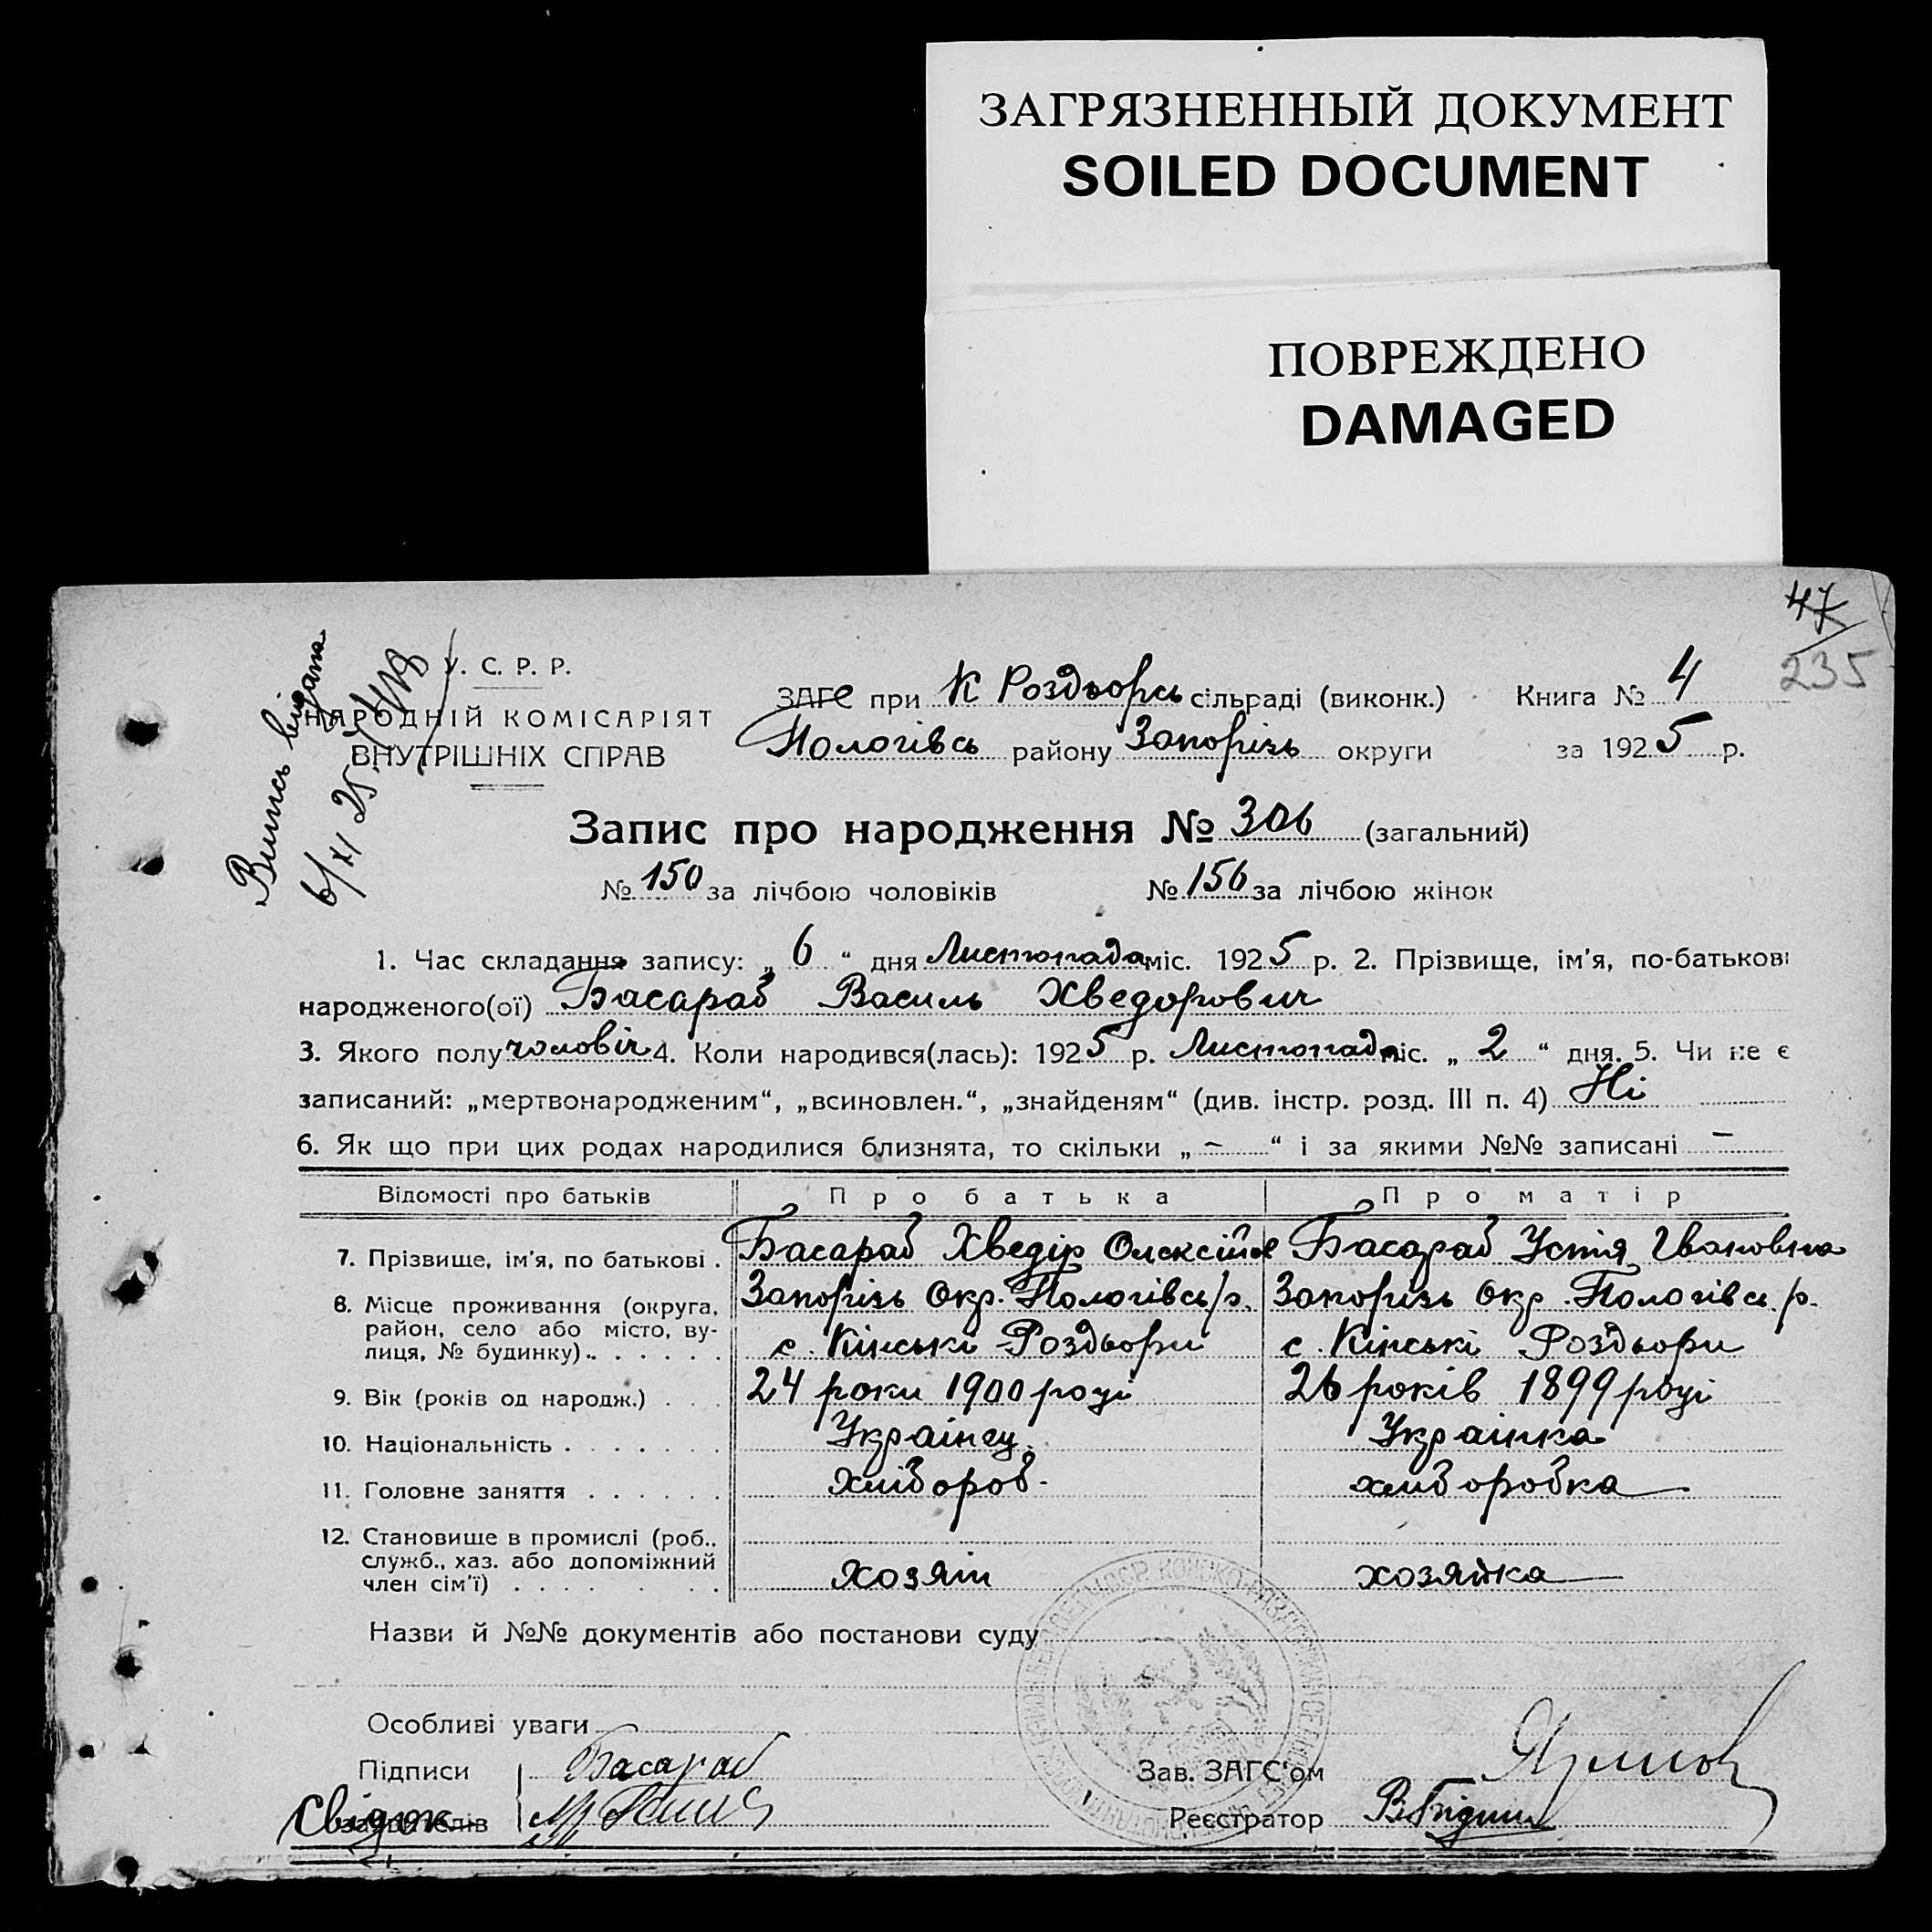 ЗАГРЯЗНЕННЫЙ ДОКУМЕНТ
SOILED DOCUMENT
ПОВРЕЖДЕНО
DAMAGED
47
235
Випись видана
6/XI 25
У. С. Р. Р.
НАРОДНІЙ КОМІСАРІЯТ
ВНУТРІШНІХ СПРАВ
ЗАГС при К Роздорсь сільраді (виконк.) Книга № 4
Пологівсь району Запорізь округи за 1925 р.
Запис про народження № 306 (загальний)
№ 150 за лічбою чоловіків № 156 за лічбою жінок
1. Час складання запису: „ 6 “ дня Листопада міс. 1925 р. 2. Прізвище, ім'я, по-батькові
народженого(ої) Басараб Василь Хведорович
3. Якого полу чоловіч 4. Коли народився(лась): 1925 р. Листопад міс. „ 2 “ дня. 5. Чи не є
записаний: „мертвонародженим“, „всиновлен.“, „знайденям“ (див. інстр. розд. III п. 4) Ні
6. Як що при цих родах народилися близнята, то скільки „ – “ і за якими №№ записані –
Відомості про батьків Про батька Про матір
7. Прізвище, ім'я, по батькові . Басараб Хведір Олексійов Басараб Устя Івановна
8. Місце проживання (округа, район, село або місто, вулиця, № будинку) Запорізь Окр. Пологівсь/р. Запорізь Окр. Пологівсь./р.
с. Кінські Роздори с. Кінські Роздори
9. Вік (років од народж.) . . . 24 роки 1900 році 26 років 1899 році
10. Національність . . . . . . . Українц. Українка
11. Головне заняття . . . . . . Хлібороб- хліборобка
12. Становище в промислі (роб., служб., хаз. або допоміжний член сім'ї) Хозяїн хозяйка
Назви й №№ документів або постанови суду
Особливі уваги
Підписи Басараб Зав. ЗАГС'ом
Свідок заявителів Реєстратор